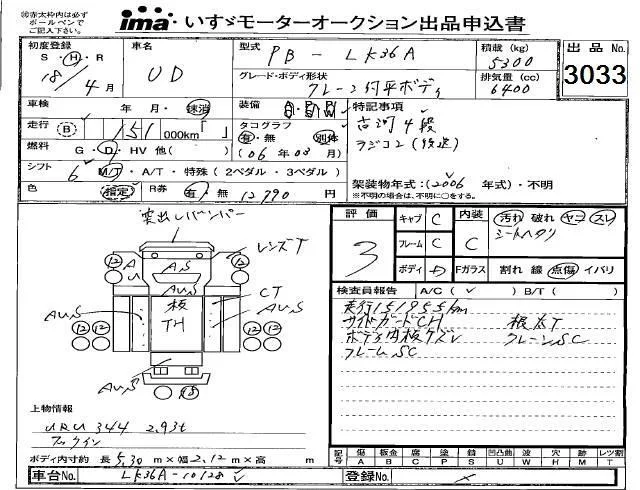 ※赤太枠内は必ず
ボールペンで
ご記入下さい。
ima いすゞモーターオークション出品申込書
初度登録 S・H・R 18年 4月
車名 UD
型式 PB-LK36A
積載 (kg) 5300
排気量 (cc) 6400
出品No. 3033
グレード・ボディ形状 クレーン付平ボディ
車検 年・月・抹消
装備
特記事項
古河4段
ラジコン(後送)
走行 B 151 000km「 」
タコグラフ 有・無 別体
燃料 G・D・HV 他( )
(06年03月)
シフト 6 M/T・A/T・特殊(2ペダル・3ペダル)
色 指定 R券 有・無 12790円
架装物年式:(2006年式)・不明
※不明の場合は、不明に○をする。
評価 3
キャブ C
フレーム C
ボディ D
内装 C
汚れ 破れ ヤニ スレ
シートヘタリ
Fガラス 割れ 線 点傷 イバリ
検査員報告 A/C( ✓ ) B/T( )
走行151955km
サイドガードCH 根太T
ボディ内板ケズレ クレーンSC
フレームSC
突出しバンパー
レンズT
12 A A,S 12
AU,S
板
TH
CT
AU,S
AU,S
12 12 12 12
AU,S
18
上物情報
URU344 2.93t
フックイン
ボディ内寸約 長5.30m×幅2.12m×高 m
記号 傷 A 板金 B 腐 C 塗 P 錆 S 凹凸曲 U 波 W 穴 H 跡 M レツ割 T
車台No. LK36A-10128
登録No.